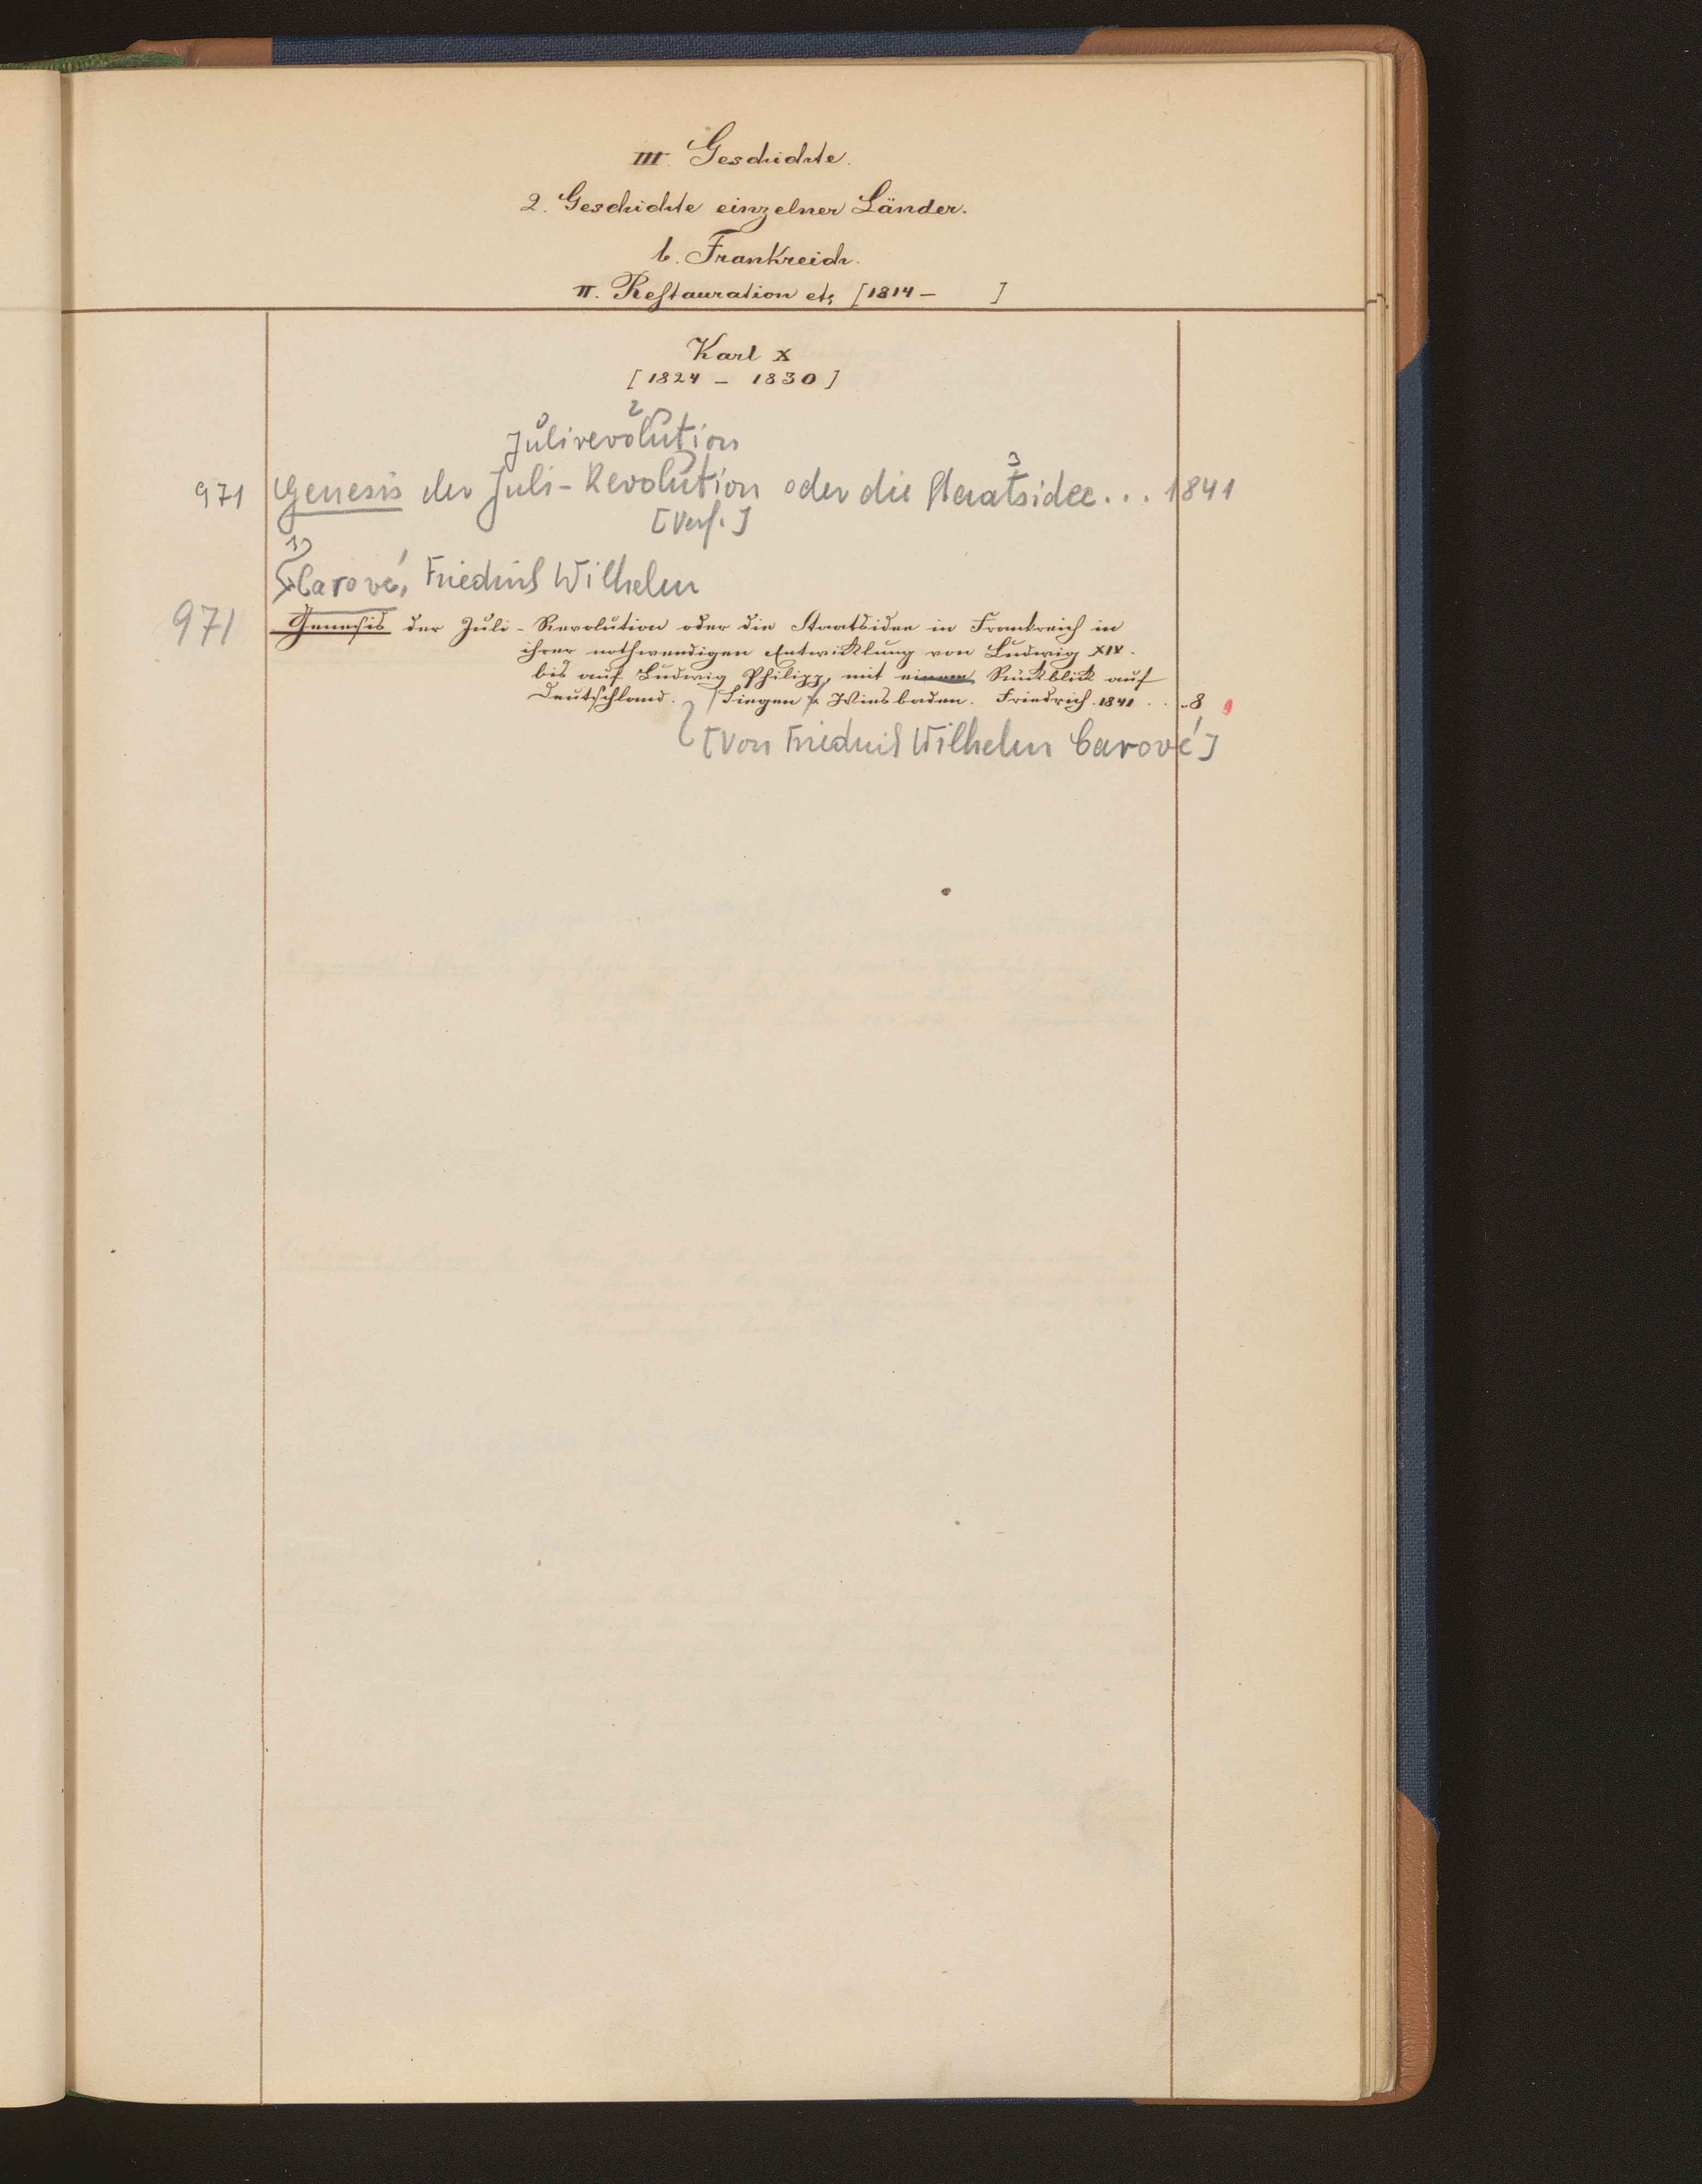 III. Geschichte.
2. Geschichte einzelner Länder.
b. Frankreich.
II. Restauration etc [1814 – ]
Karl X
[1824 – 1830]
2
Julirevolution
3
971 Genesis der Juli-Revolution oder die Staatsidee... 1841
[Verf.]
1)
Carové, Friedrich Wilhelm
971 Genesis der Juli-Revolution oder die Staatsidee in Frankreich in
ihrer nothwendigen Entwicklung von Ludwig XIV.
bis auf Ludwig Philipp, mit einem Rückblick auf
Deutschland. Siegen & Wiesbaden. Friedrich. 1841 . . .. 8
[Von Friedrich Wilhelm Carové]